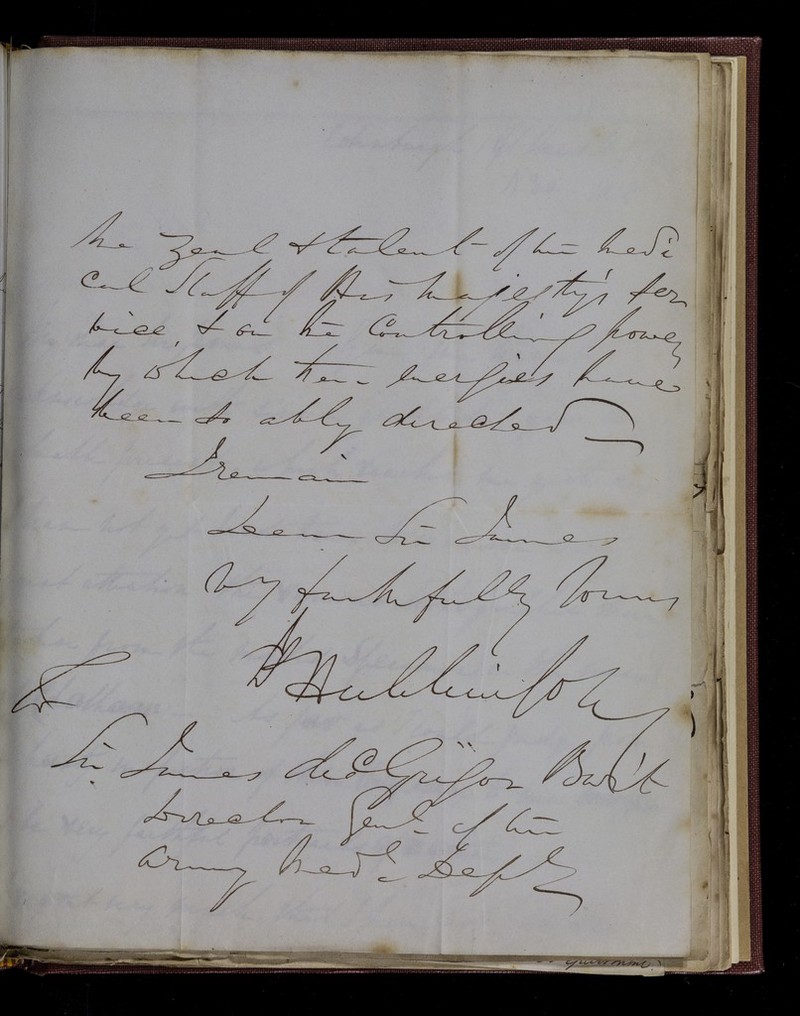 the Zeal & talent of the Medi
cal Staff of His Majesty's Ser
vice, & on the Controlling power
by which their energies have
been so ably directed
I remain
Dear Sir James
Vy faithfully Yours
Hutchinson
To
Sir James McGrigor Bar't
Director Genl. of the
Army Medl. Dept